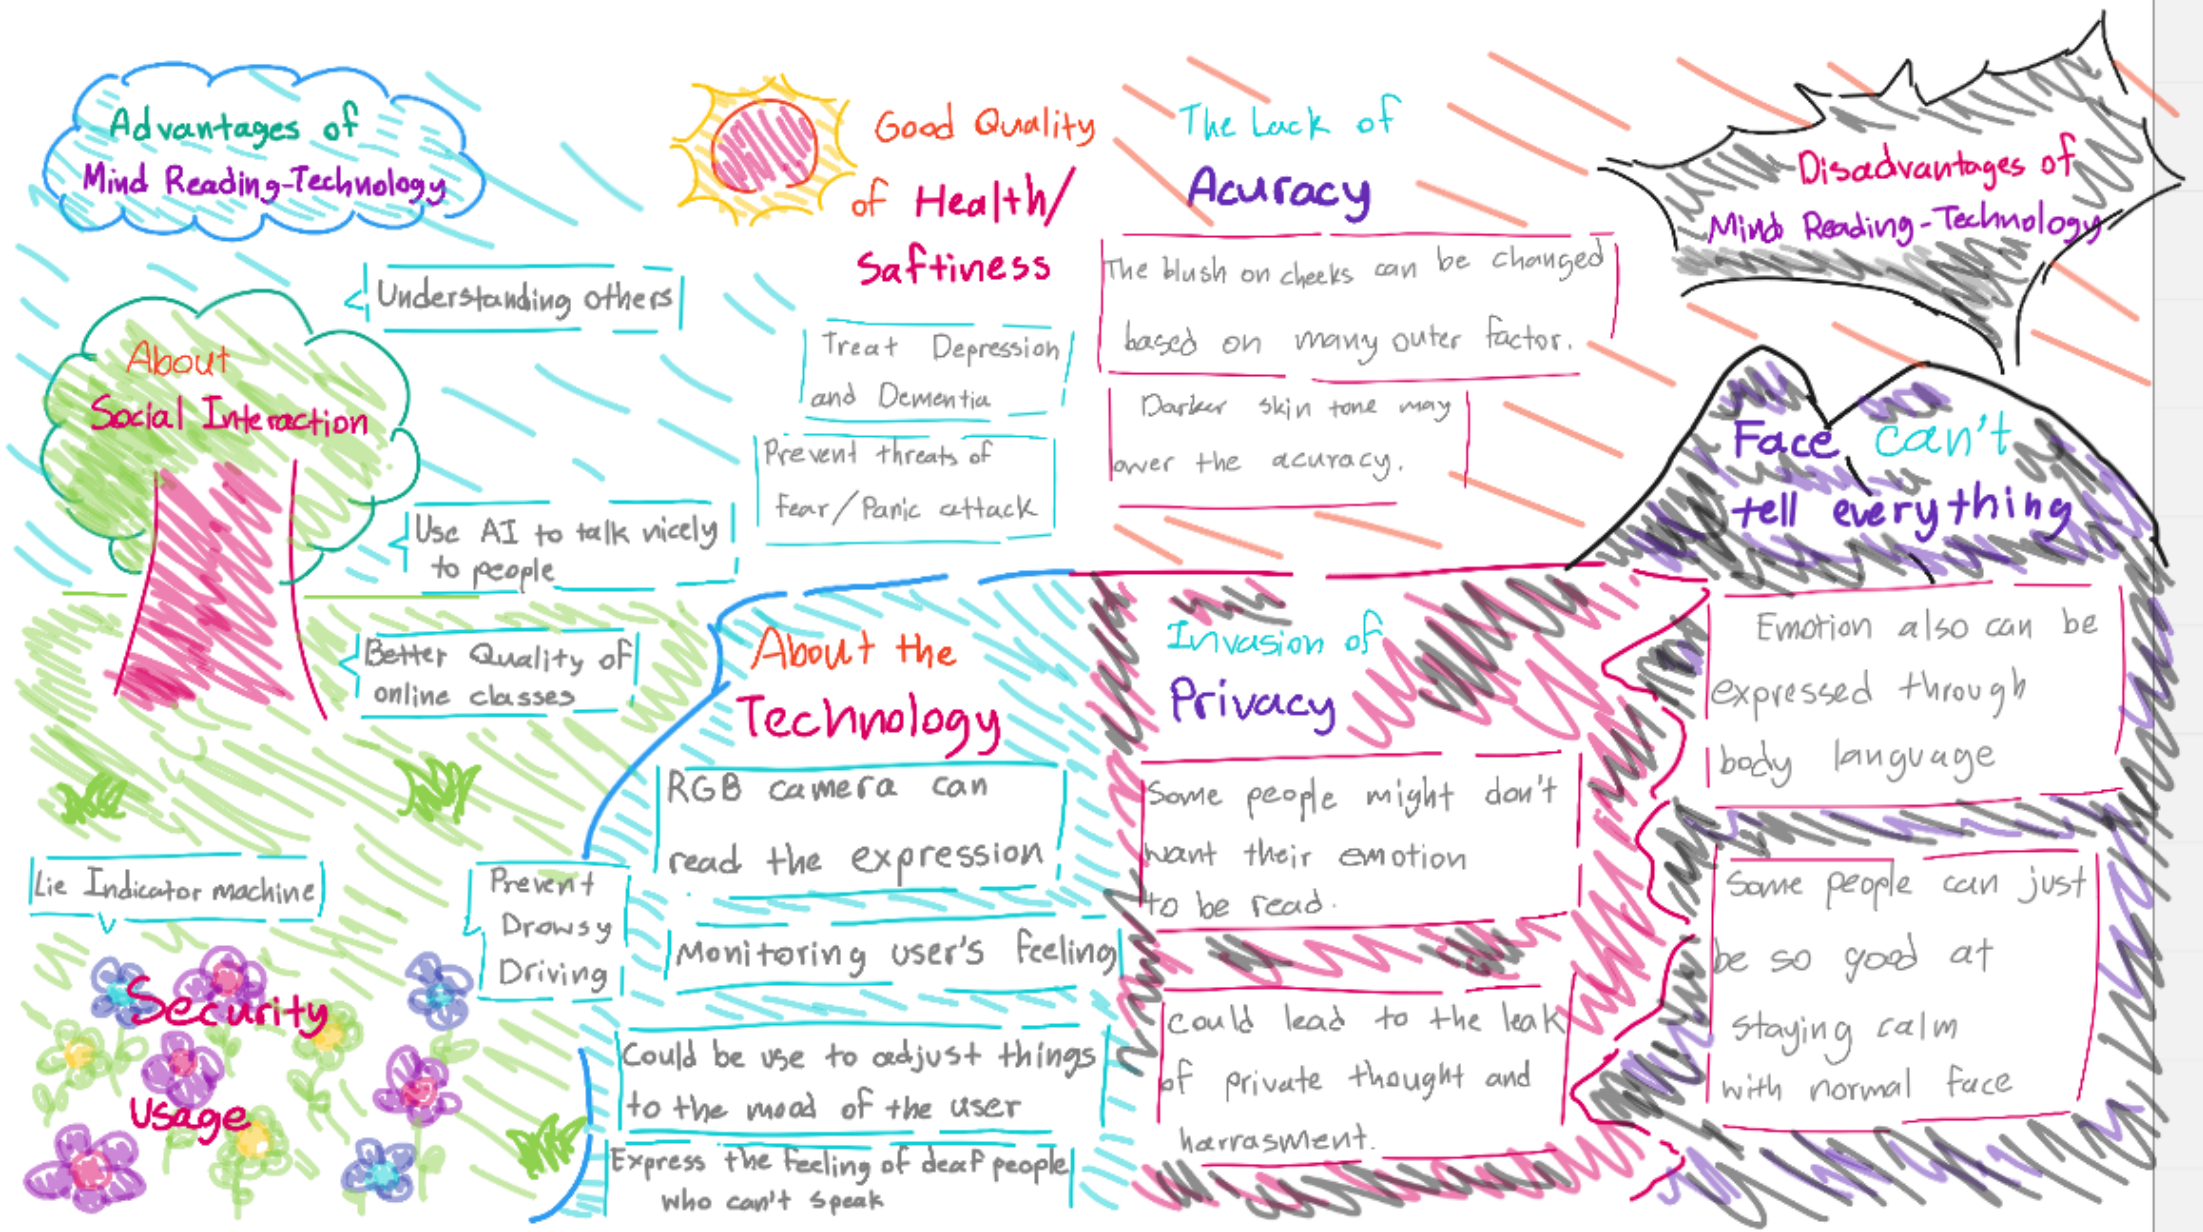 Advantages of
Mind Reading-Technology
Understanding others
About
Social Interaction
Use AI to talk nicely
to people
Better Quality of
online classes
Lie Indicator machine
Prevent
Drowsy
Driving
Security
Usage
Good Quality
of Health/
Saftiness
Treat Depression
and Dementia
Prevent threats of
fear/Panic attack
About the
Technology
RGB camera can
read the expression
Monitoring user's feeling
Could be use to adjust things
to the mood of the user
Express the feeling of deaf people
who can't speak
The Lack of
Acuracy
The blush on cheeks can be changed
based on many outer factor.
Darker skin tone may
lower the acuracy.
Invasion of
Privacy
Some people might don't
want their emotion
to be read.
Could lead to the leak
of private thought and
harrasment.
Disadvantages of
Mind Reading-Technology
Face can't
tell everything
Emotion also can be
expressed through
body language
Some people can just
be so good at
staying calm
with normal face